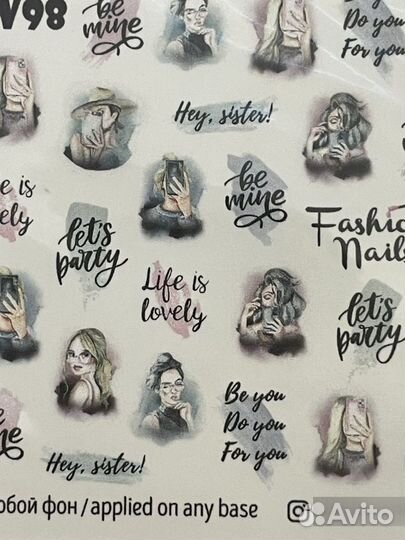 V98
be
mine
Be you
Do you
For you
Hey, sister!
Life is
lovely
be
mine
let's
party
Fashio
Nails
Life is
lovely
let's
party
be
mine
Be you
Do you
For you
Hey, sister!
обой фон / applied on any base
Avito